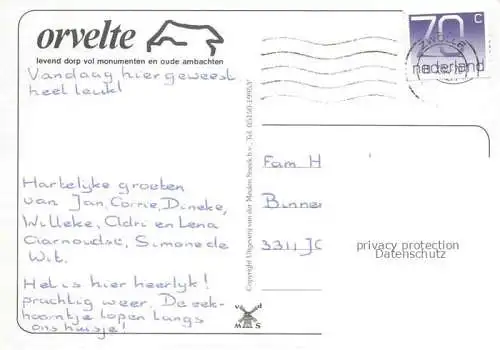 orvelte
levend dorp vol monumenten en oude ambachten
Vandaag hier geweest
heel leuk!
Hartelijke groeten
van Jan, Corrie, Dineke,
Willeke, Adri en Lena
Ciarnoudse, Simone de
Wit.
Het is hier heerlijk!
prachtig weer. De eek-
hoorntje lopen langs
ons huisje!
Copyright Uitgeverij van der Meulen Sneek b.v., Tel. 05150-19905/Y
v d
M S
70 c
nederland
ZWOLLE
Fam H
Binner
3311 JC
privacy protection
Datenschutz